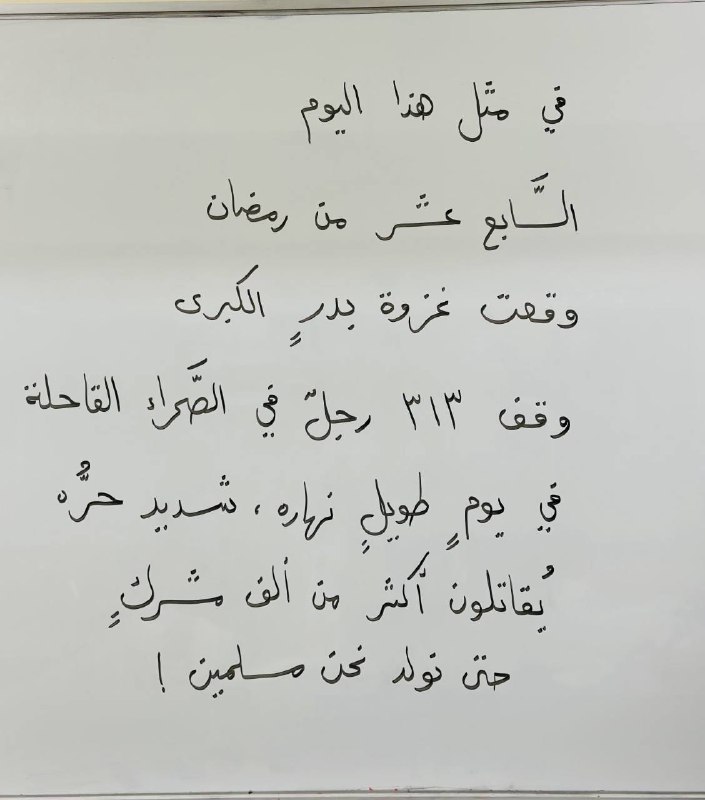 في مثل هذا اليوم
السَّابع عشر من رمضان
وقعت غزوة بدرٍ الكبرى
وقف ٣١٣ رجلٌ في الصَّحراء القاحلة
في يومٍ طويلٍ نهاره ، شديد حرُّه
يُقاتلون أكثر من ألف مشركٍ
حتى نولد نحن مسلمين !